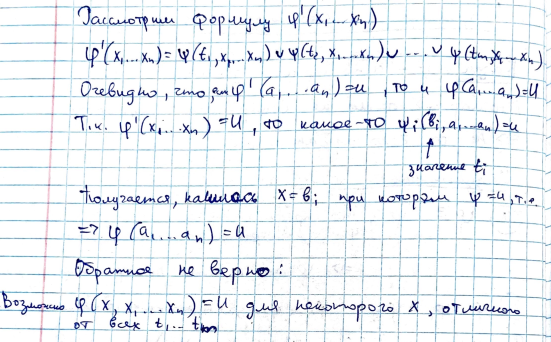 Рассмотрим формулу φ'(x₁...xₙ)
φ'(x₁...xₙ)=ψ(t₁,x₁...xₙ) ∨ ψ(t₂, x₁...xₙ) ∨ ... ∨ ψ(tₘ,x₁...xₙ)
Очевидно, что, φ'(a₁...aₙ)=и, то и φ(a₁...aₙ)=и
Т.к. φ'(x₁...xₙ)=И, то какое-то ψᵢ(вᵢ,a₁...aₙ)=и
↑
значение tᵢ
Получается, нашлось x=вᵢ при котором ψ=и, т.е.
=> φ(a₁...aₙ)=И
Обратное не верно:
Возможно φ(x, x₁...xₙ)=И для некоторого x, отличного
от всех t₁...tₘ